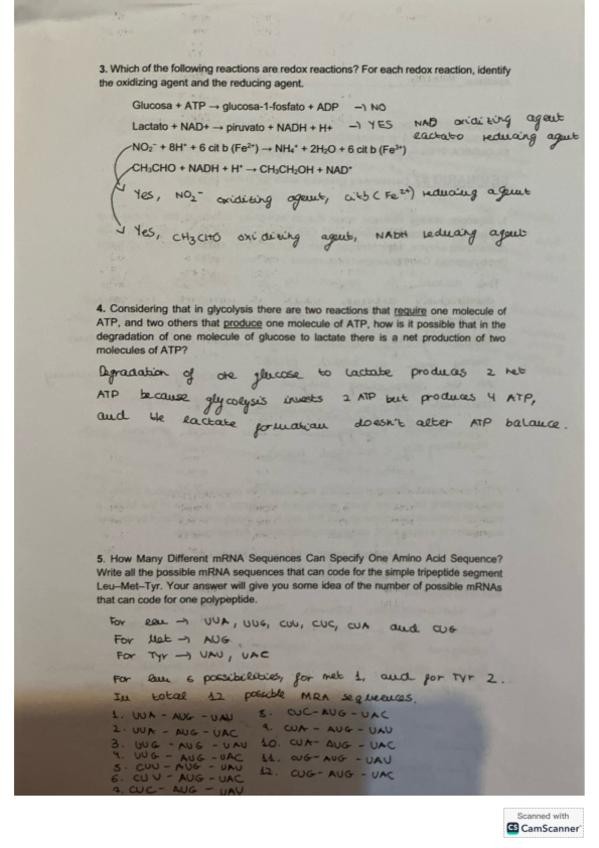 3. Which of the following reactions are redox reactions? For each redox reaction, identify
the oxidizing agent and the reducing agent.
Glucosa + ATP → glucosa-1-fosfato + ADP → NO
Lactato + NAD+ → piruvato + NADH + H+ → YES NAD oxidizing agent
lactato reducing agent
NO₂⁻ + 8H⁺ + 6 cit b (Fe²⁺) → NH₄⁺ + 2H₂O + 6 cit b (Fe³⁺)
CH₃CHO + NADH + H⁺ → CH₃CH₂OH + NAD⁺
Yes, NO₂⁻ oxidizing agent, citb (Fe²⁺) reducing agent
Yes, CH₃CHO oxidizing agent, NADH reducing agent
4. Considering that in glycolysis there are two reactions that require one molecule of
ATP, and two others that produce one molecule of ATP, how is it possible that in the
degradation of one molecule of glucose to lactate there is a net production of two
molecules of ATP?
Degradation of one glucose to lactate produces 2 net
ATP because glycolysis invests 2 ATP but produces 4 ATP,
and the lactate formation doesn't alter ATP balance.
5. How Many Different mRNA Sequences Can Specify One Amino Acid Sequence?
Write all the possible mRNA sequences that can code for the simple tripeptide segment
Leu–Met–Tyr. Your answer will give you some idea of the number of possible mRNAs
that can code for one polypeptide.
For leu → UUA, UUG, CUU, CUC, CUA and CUG
For Met → AUG
For Tyr → UAU, UAC
For leu 6 possibilities, for met 1, and for Tyr 2.
In total 12 possible MRA sequences.
1. UUA - AUG - UAU 8. CUC - AUG - UAC
2. UUA - AUG - UAC 9. CUA - AUG - UAU
3. UUG - AUG - UAU 10. CUA - AUG - UAC
4. UUG - AUG - UAC 11. CUG - AUG - UAU
5. CUU - AUG - UAU 12. CUG - AUG - UAC
6. CUU - AUG - UAC
7. CUC - AUG - UAU
Scanned with
CS CamScanner